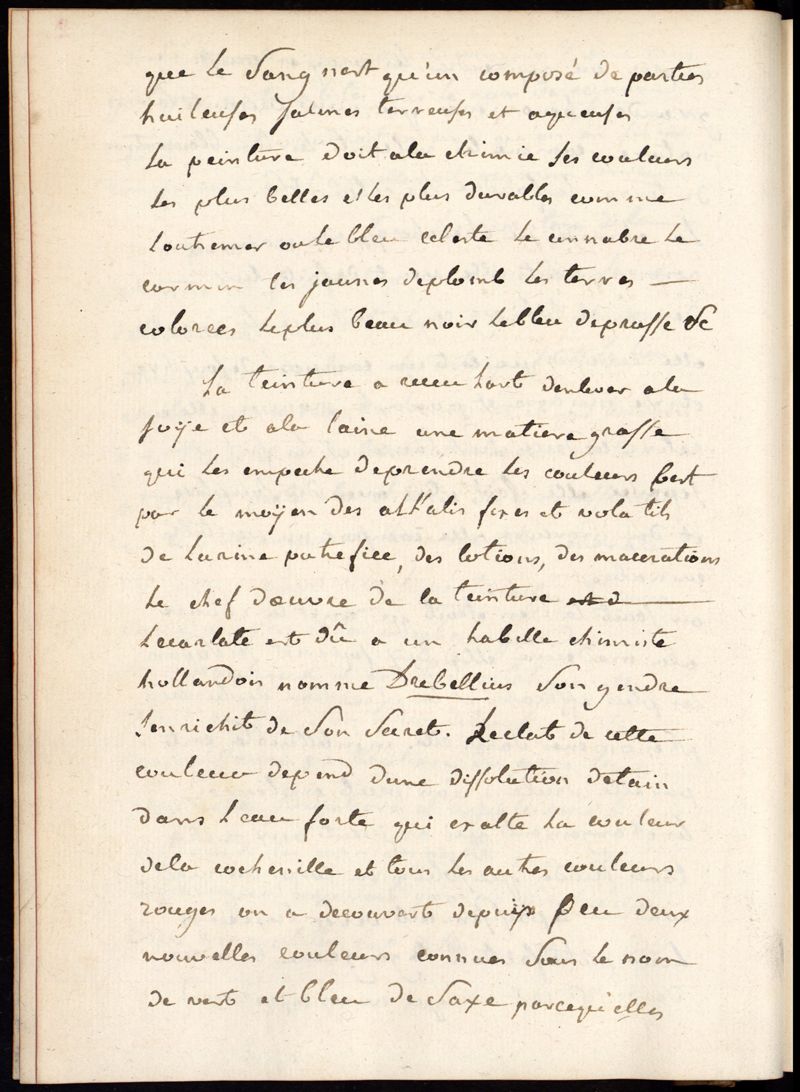 que le Sang nest qu'un composé de parties
huileuses salines terreuses et aqueuses
La peinture doit ala chimie ses couleurs
les plus belles et les plus durables comme
Loutremer ou le bleu celeste le cinnabre le
carmin les jaunes deplomb les terres —
colorées le plus beau noir le bleu deprusse &c
La teinture a receu Lart denlever ala
soÿe et ala laine une matiere grasse
qui les empeche deprendre les couleurs Cest
par le moÿen des alkalis fixes et volatils
de Lurine putrefiée, des lotions, des macerations
Le chef dœuvre de la teinture
Lecarlate est dû a un habille chimiste
hollandois nommé Drebellius Son gendre
senrichit de Son Secret. Leclat de cette
couleur depend dune dissolution detain
dans Leau forte qui exalte La couleur
dela cochenille et tous les autres couleurs
rouges on a decouvert depuis peu deux
nouvelles couleurs connues Sous le nom
de vert et bleu de Saxe parcequ'elles